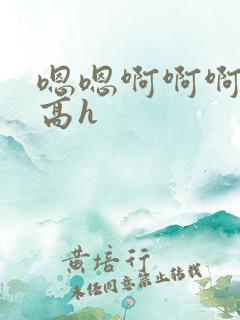 嗯嗯啊啊啊
高h
黄培行
未经同意禁止转载